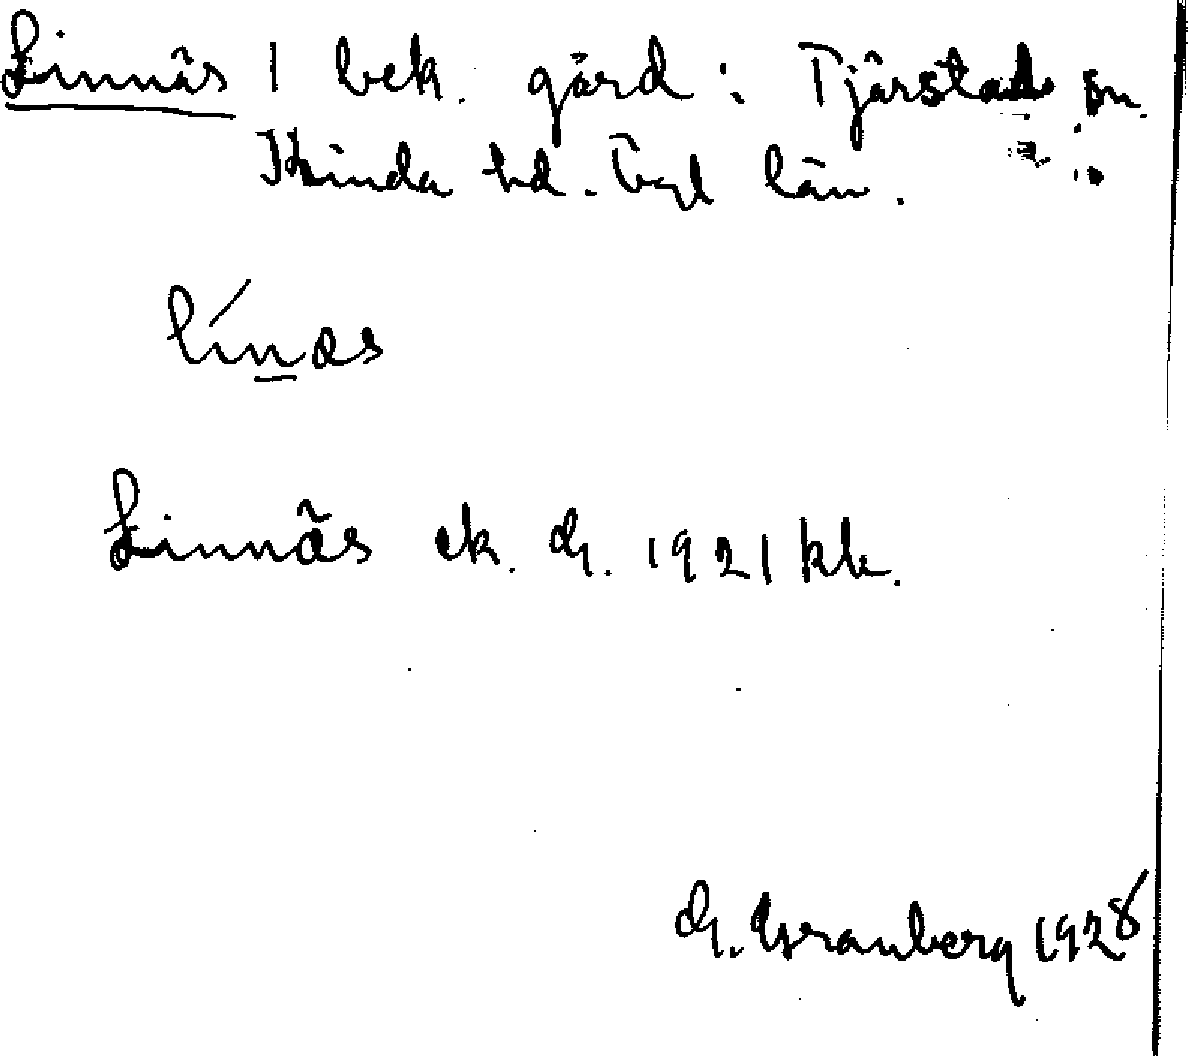 Linnäs 1 bek. gård : Tjärstad sn.
Kinda hd. Ögl län.
línas
Linnäs ek. G. 1921 kbk.
G. Granberg 1928